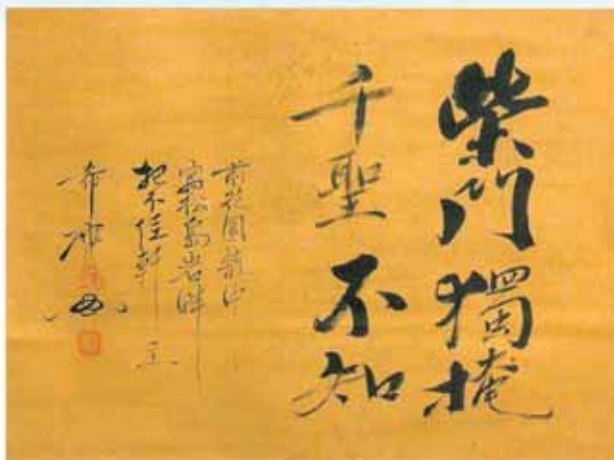 柴門獨掩
千聖不知
前花園護中
寓松島岩畔
把不住軒主
希